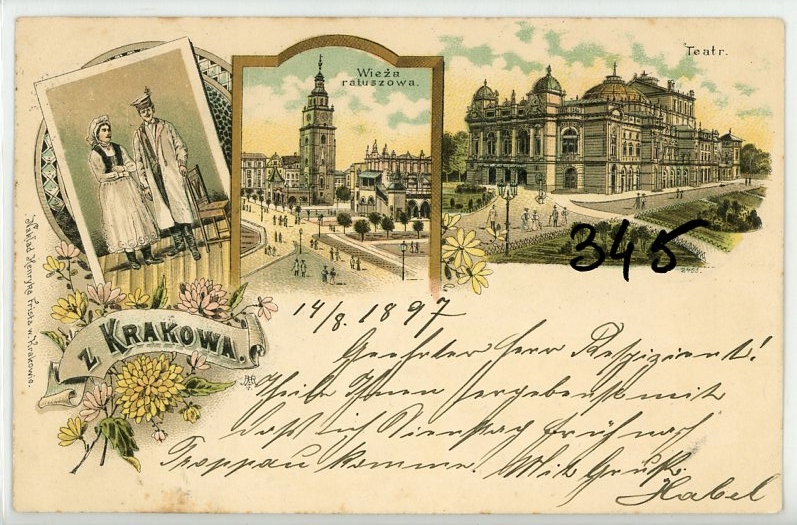 Wieża
ratuszowa.
Teatr.
345
2465.
Z KRAKOWA.
Nakład Henryka Frista w Krakowie.
14/8. 1897
Geehrter Herr Respizient!
Theile Ihnen ergebenst mit
daß ich Dienstag früh nach
Troppau komme. Mit Gruß
Habel